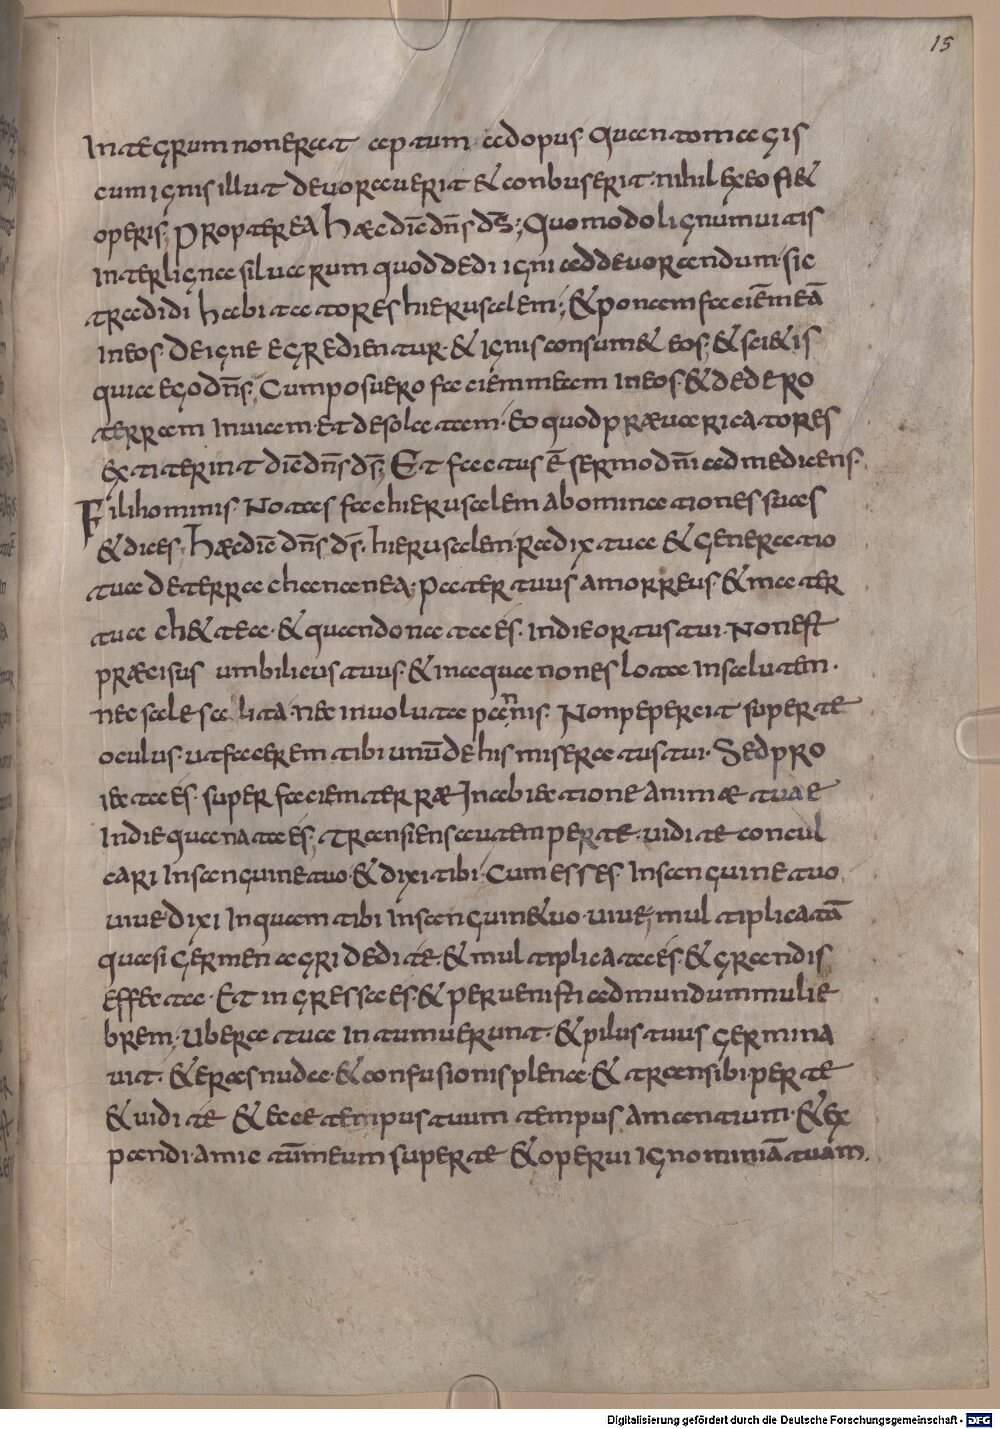 15
Integrum non erat aptum ad opus. Quanto magis
cum ignis illut devoraverit & conbuserit. nihil ex eo fi&
operis; Propterea hæc dic̄ dn̄s ds̄; Quomodo lignum vitis
inter ligna silvarum quod dedi igni ad devorandum. sic
tradidi habitatores hierusalem; & ponam faciēm eā
in eos. De igne egredientur. & ignis consum& eos; & sci&is
quia ego dn̄s; Cum posuero faciem meam in eos. & dedero
terram inviem. Et desolatam. eo quod prævaricatores
extiterint dic̄ dn̄s ds̄; Et factus ē sermo dn̄i ad me dicens.
Fili hominis. Notas fac hierusalem abominationes suas
& dices; Hæc dic̄ dn̄s ds̄. hierusalem. Radix tua & generatio
tua de terra chananea. Pater tuus amorreus. & mater
tua ch&tea. & quando nata es. in die ortus tui. Non est
præcisus umbilicus tuus. & in aqua non es lota in salutem.
nec sale salita. nec involuta pannis. Non pepercit super te
oculus. ut facerem tibi unū de his miseratus tui. Sed pro
iecta es. super faciem terræ In abiectione animæ tuae
In die qua nata es; Transiens autem per te. vidi te concul
cari in sanguine tuo. & dixi tibi. Cum esses in sanguine tuo
vive dixi inquam tibi In sanguine tuo. vive; multiplicatā
quasi germen agri dedi te. & multiplicata es. & grandis
effecta. Et ingressa es. & pervenisti ad mundum mulie
brem. Ubera tua intumuerunt. & pilus tuus germina
vit. & eras nuda. & confusionis plena. & transibi per te
& vidi te & ecce tempus tuum tempus amantium. & ex
pandi amictūm eum super te & operui ignominiā tuam.
Digitalisierung gefördert durch die Deutsche Forschungsgemeinschaft - DFG